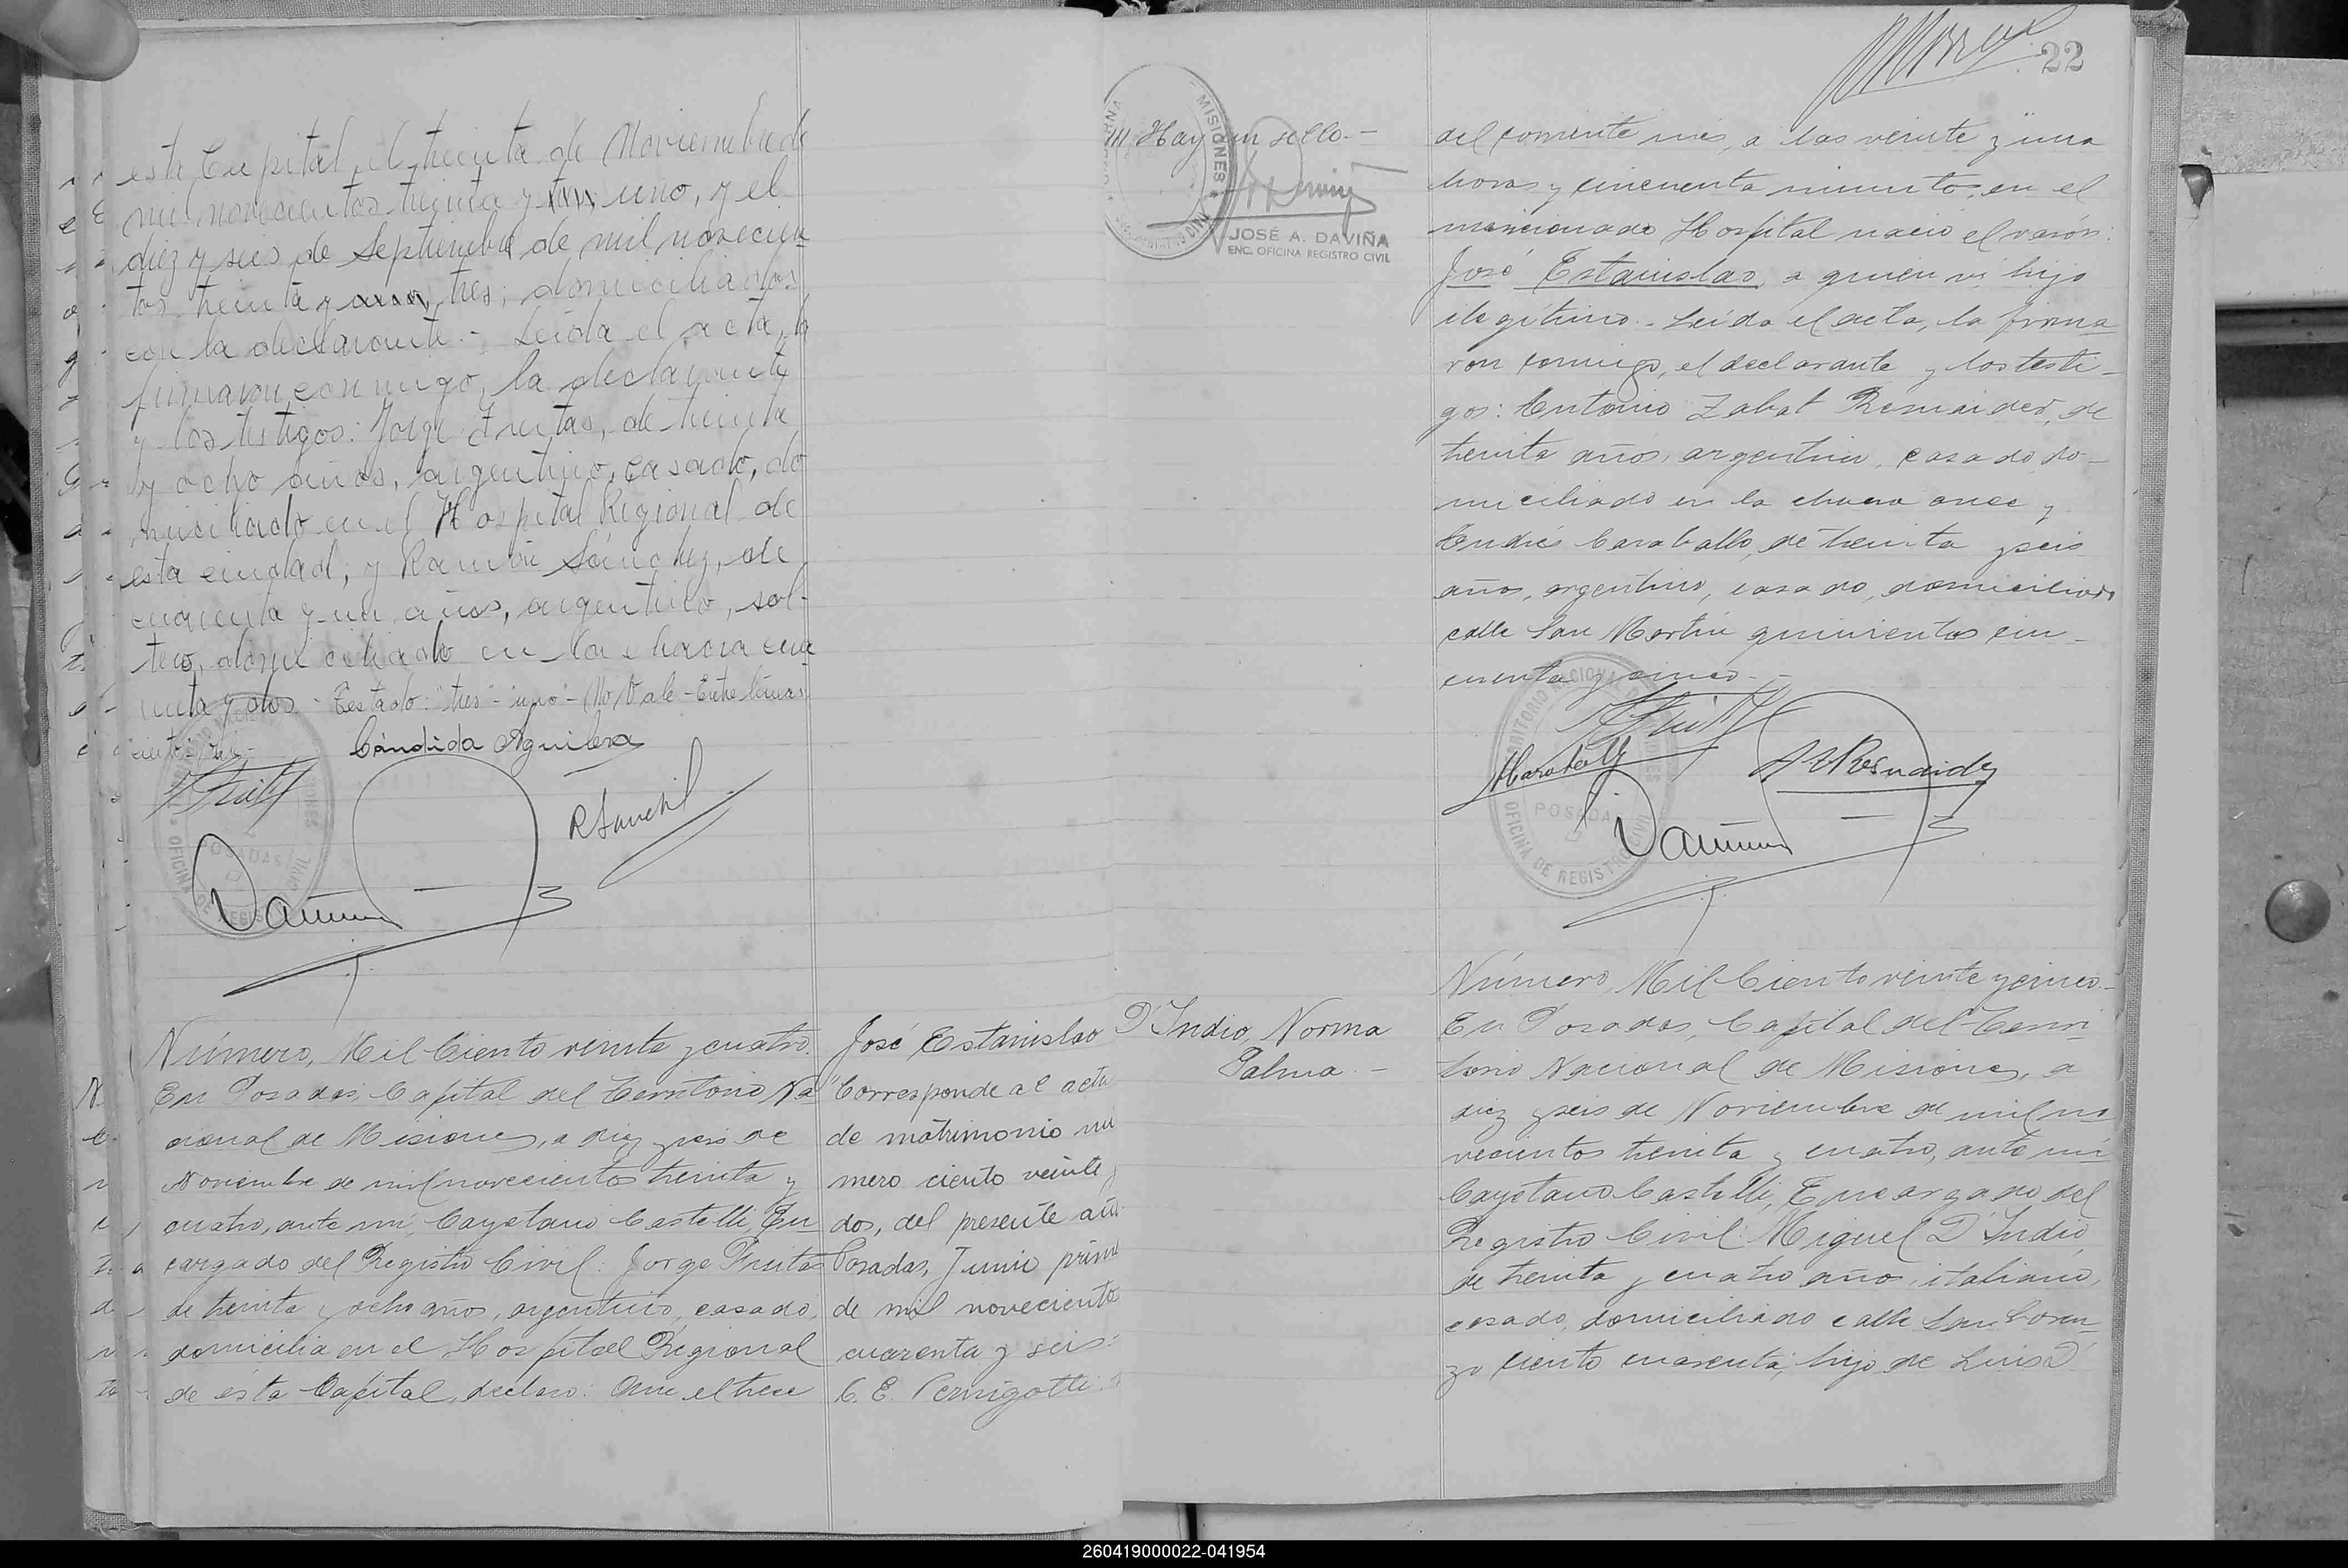 esta Capital, el treinta de Noviembre de
mil novecientos treinta y tres uno, y el
diez y seis de Septiembre de mil novecien-
tos treinta y uno, tres; domiciliados
con la declarante.- Leída el acta, la
firmaron conmigo, la declarante
y los testigos: Jorge Fruitas, de treinta
y ocho años, argentino, casado, do
miciliado en el Hospital Regional de
esta ciudad; y Ramón Sánchez, de
cuarenta y un años, argentino, sol-
tero, domiciliado en la chacra cua
renta y dos - Testado: "tres" - "uno" - No Vale - Entre líneas
Cándida Aguilera
R Sanchez
Número, Mil Ciento veinte y cuatro.
En Posadas, Capital del Territorio Na-
cional de Misiones, a diez y seis de
Noviembre de mil novecientos treinta y
cuatro, ante mí, Cayetano Castelli, En
cargado del Registro Civil: Jorge Fruitas
de treinta y ocho años, argentino, casado,
domicilia en el Hospital Regional
de ésta Capital, declaró: Que el trece
José Estanislao
"Corresponde al acta
de matrimonio nú
mero ciento veinte y
dos, del presente año.
Posadas, Junio prime
de mil noveciento
cuarenta y seis.
C. E. Pernigotti
22
/// Hay un sello.-
MISIONES
JOSÉ A. DAVIÑA
ENC. OFICINA REGISTRO CIVIL
del corriente mes, a las veinte y una
horas y cincuenta minutos, en el
mencionado Hospital nació el varón:
José Estanislao, a quien vi, hijo
ilegítimo.- Leída el acta, la firma
ron conmigo, el declarante y los testi-
gos: Antonio Zabat Resnaider, de
treinta años, argentino, casado do-
miciliado en la chacra once y
Andrés Caraballo, de treinta y seis
años, argentino, casado, domiciliado
calle San Martín quinientos cin-
cuenta y cinco.-
POSADAS
OFICINA DE REGISTRO CIVIL
Número, Mil Ciento veinte y cinco.-
D'Indio, Norma
Palma.-
En Posadas, Capital del Terri-
torio Nacional de Misiones, a
diez y seis de Noviembre de mil no
vecientos treinta y cuatro, ante mí
Cayetano Castelli, Encargado del
Registro Civil: Miguel D'Indio,
de treinta y cuatro años, italiano,
casado, domiciliado calle San Loren-
zo ciento cuarenta; hijo de Luis D'
260419000022-041954